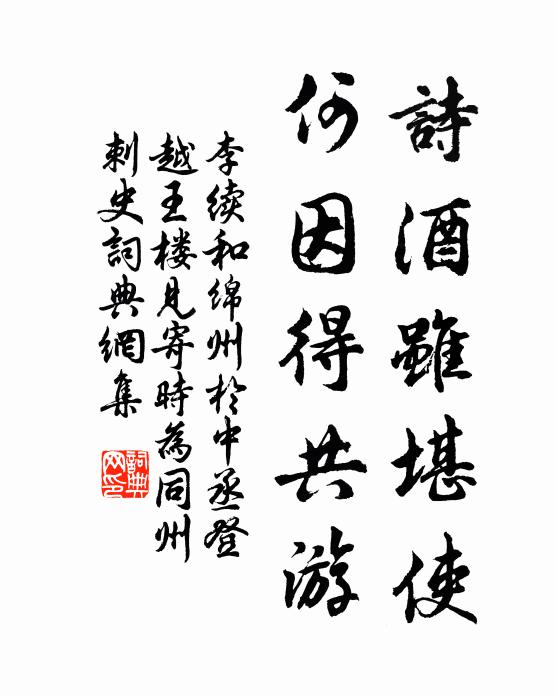 詩酒雖堪使
何因得共游
李续和绵州於中丞登
越王楼見寄時為同州
刺史詞典網集
詞典
网印